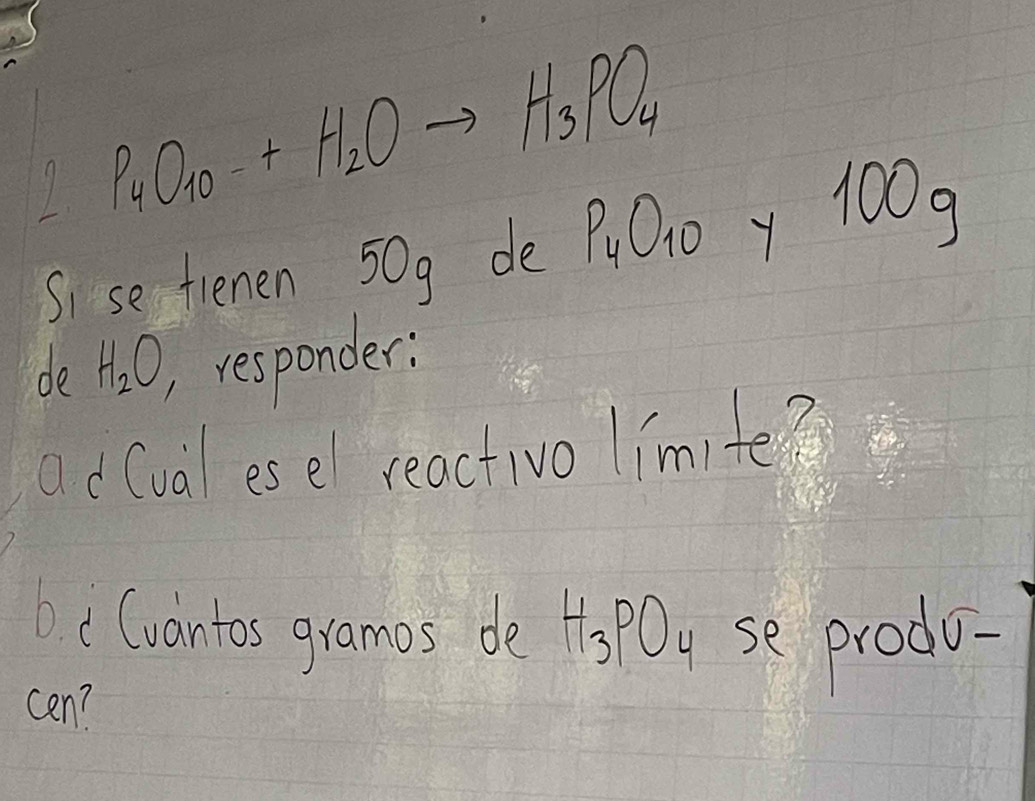 2. P₄O₁₀ + H₂O → H₃PO₄
Si se tienen 50g de P₄O₁₀ y 100g
de H₂O, responder:
a. ¿Cuál es el reactivo límite?
b. ¿Cuántos gramos de H₃PO₄ se produ-
cen?